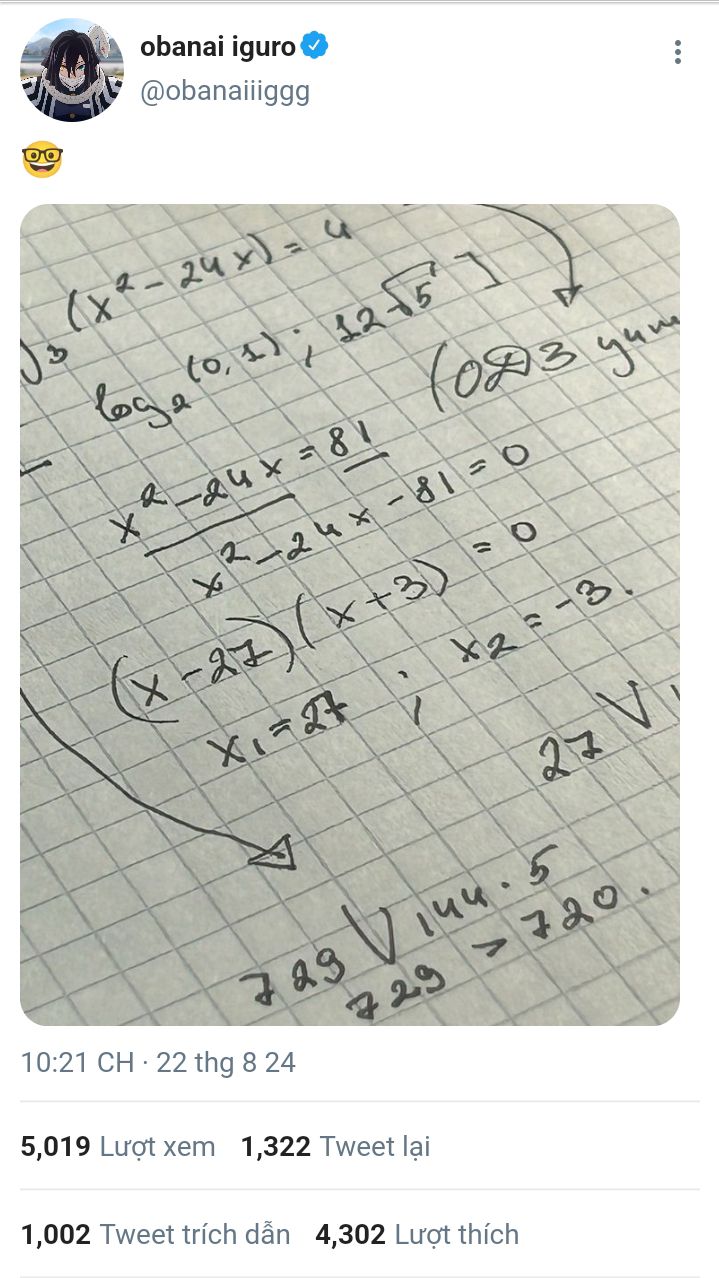 obanai iguro
@obanaiiiggg
🤓
3 (x² - 24x) = 4
log₂ (0,1) ; 12√5 ]
(ОДЗ
x² - 24x = 81
x² - 24x - 81 = 0
(x - 27)(x + 3) = 0
x₁ = 27 ; x₂ = -3.
27 V
729 V 144 · 5
729 > 720.
10:21 CH · 22 thg 8 24
5,019 Lượt xem 1,322 Tweet lại
1,002 Tweet trích dẫn 4,302 Lượt thích